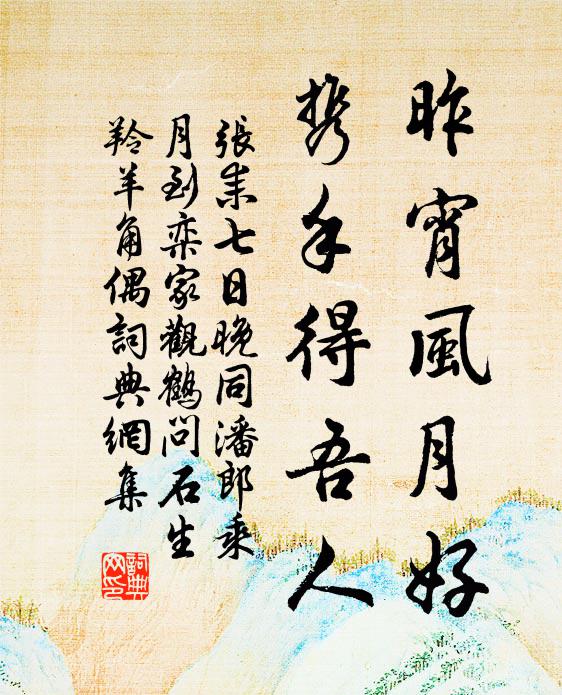 昨宵風月好
攜手得吾人
張耒七日晚同潘郎乘
月到欒家觀鶴問石生
羚羊角偶詞典網集
詞典
网印